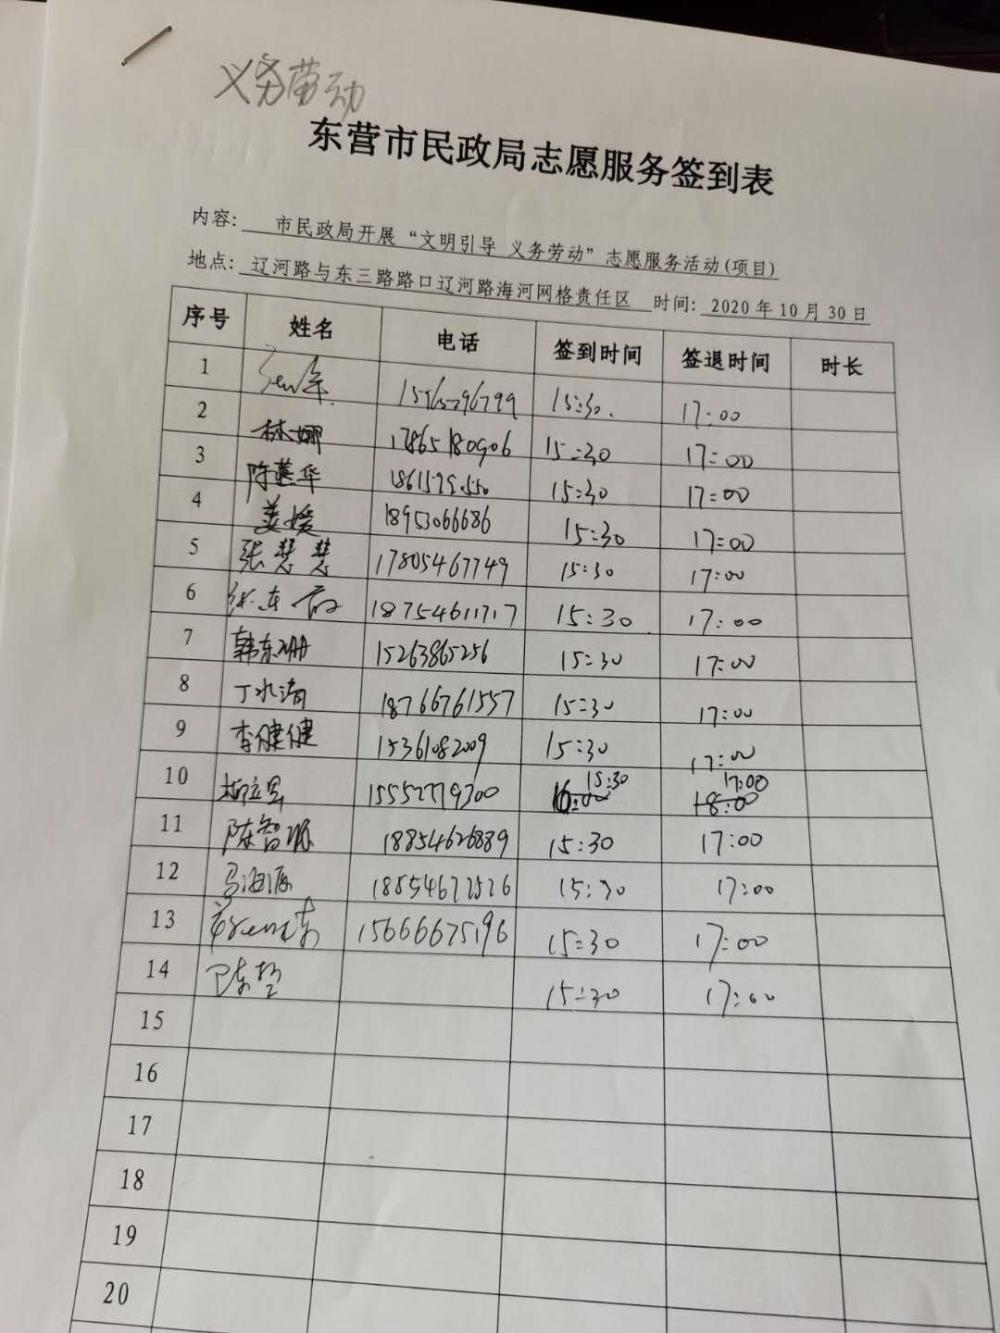 义务劳动
东营市民政局志愿服务签到表
内容: 市民政局开展“文明引导 义务劳动”志愿服务活动(项目)
地点: 辽河路与东三路路口辽河路海河网格责任区 时间: 2020年10月30日
序号 姓名 电话 签到时间 签退时间 时长
1 15:30. 17:00
2 林娜 17865180906 15:30 17:00
3 陈燕华 15:30 17:00
4 姜媛 18953066686 15:30 17:00
5 张慧慧 17805467749 15:30 17:00
6 18754611717 15:30 17:00
7 韩东珊 15263865256 15:30 17:00
8 丁水清 18766761557 15:30 17:00
9 李健健 15361082009 15:30 17:00
10 15552779300 16:00 15:30 18:00 17:00
11 18854626889 15:30 17:00
12 马海源 18854672526 15:30 17:00
13 15666675196 15:30 17:00
14 15:30 17:00
15
16
17
18
19
20